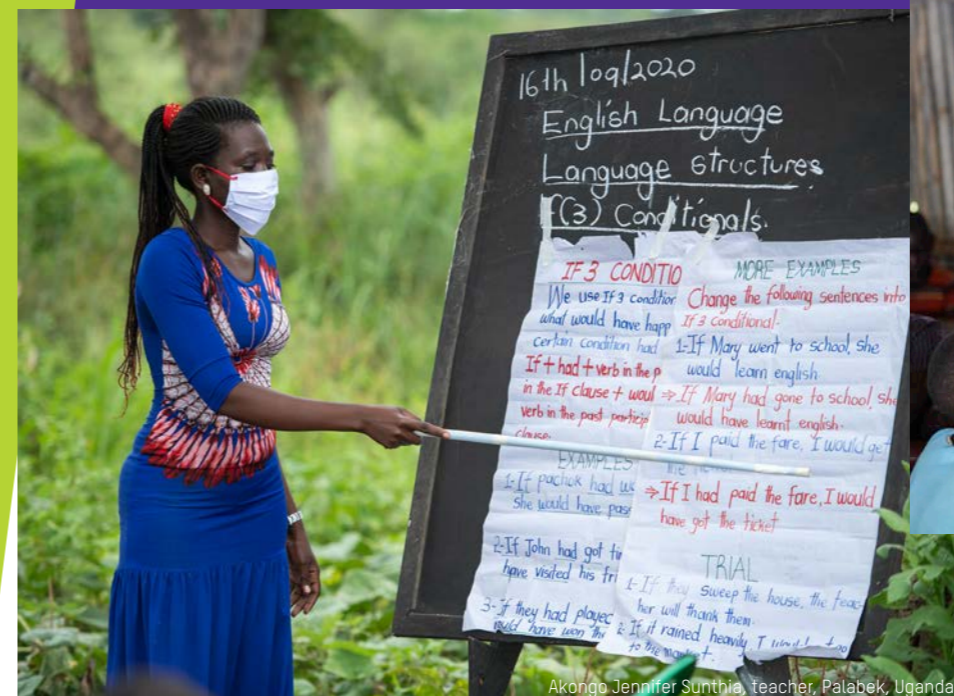 16th /09/2020
English Language
Language structures
f(3) Conditionals.
IF 3 CONDITIO
We use If 3 condition
what would have happ
certain condition had
If + had + verb in the p
in the If clause + woul
verb in the past particip
clause.
EXAMPLES
1-If pachok had
she would have pas
2-If John had got
have visited his
3-If they had played
would have won
MORE EXAMPLES
Change the following sentences into
If 3 conditional.
1-If Mary went to school, she
would learn english
⇒ If Mary had gone to school, she
would have learnt english.
2-If I paid the fare, I would get
the
⇒ If I had paid the fare, I would
have got the ticket
TRIAL
1-If they sweep the house, the teac-
her will thank them.
2-If it rained heavily I would
to the market.
Akongo Jennifer Sunthia, teacher, Palabek, Uganda